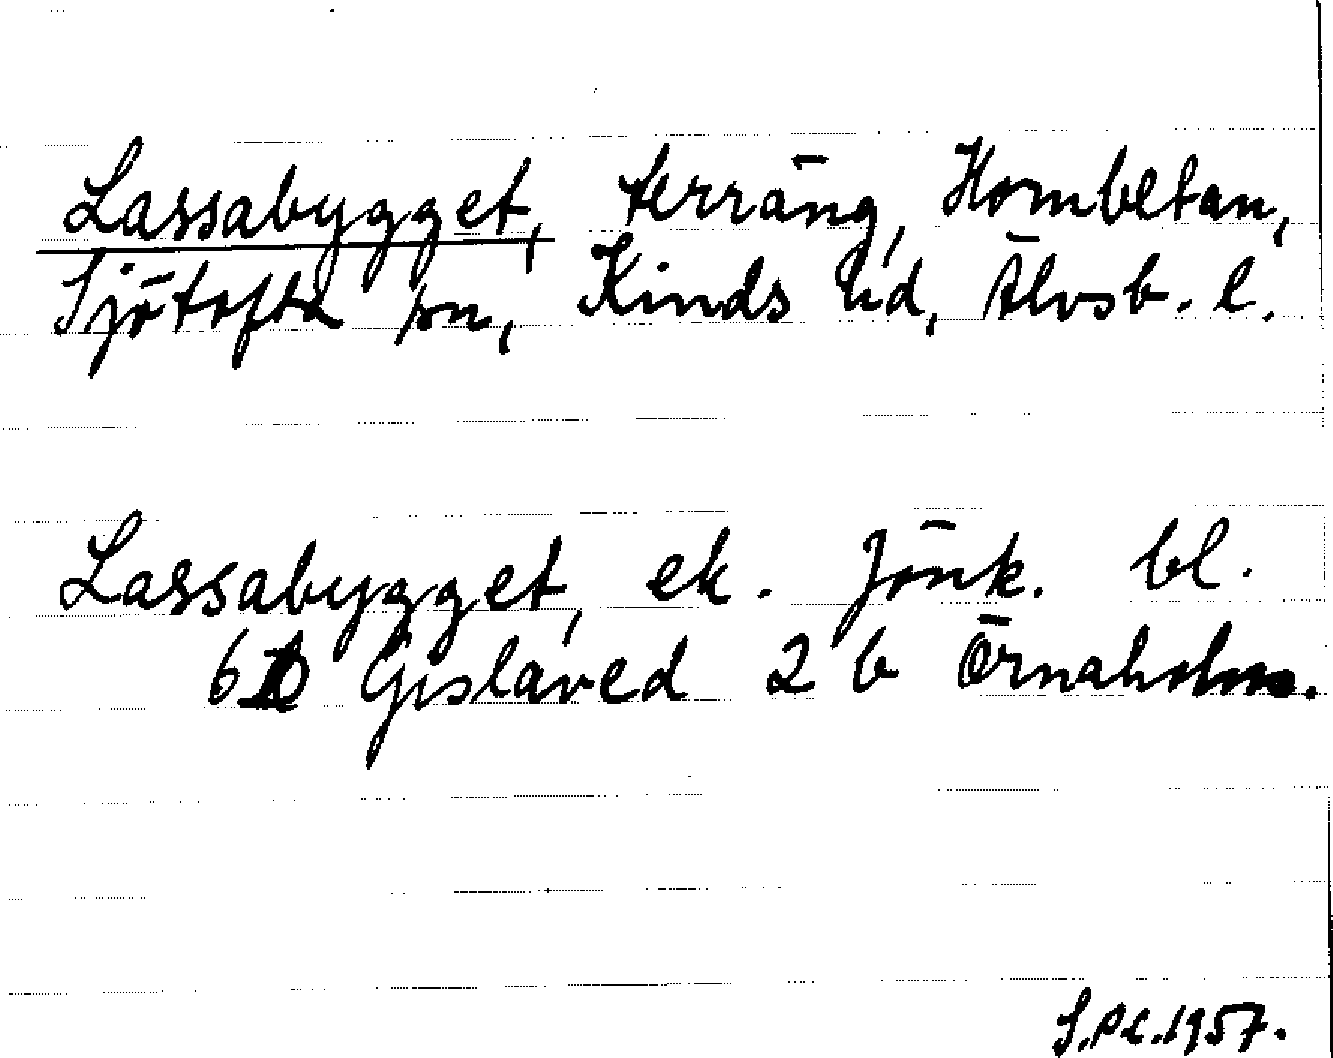 Lassabygget, terräng, Hornbetan,
Sjötofta sn, Kinds hd, Älvsb. l.
Lassabygget, ek. Jönk. bl.
6 D Gislaved 2 b Örnaholm.
S.P.L. 1957.